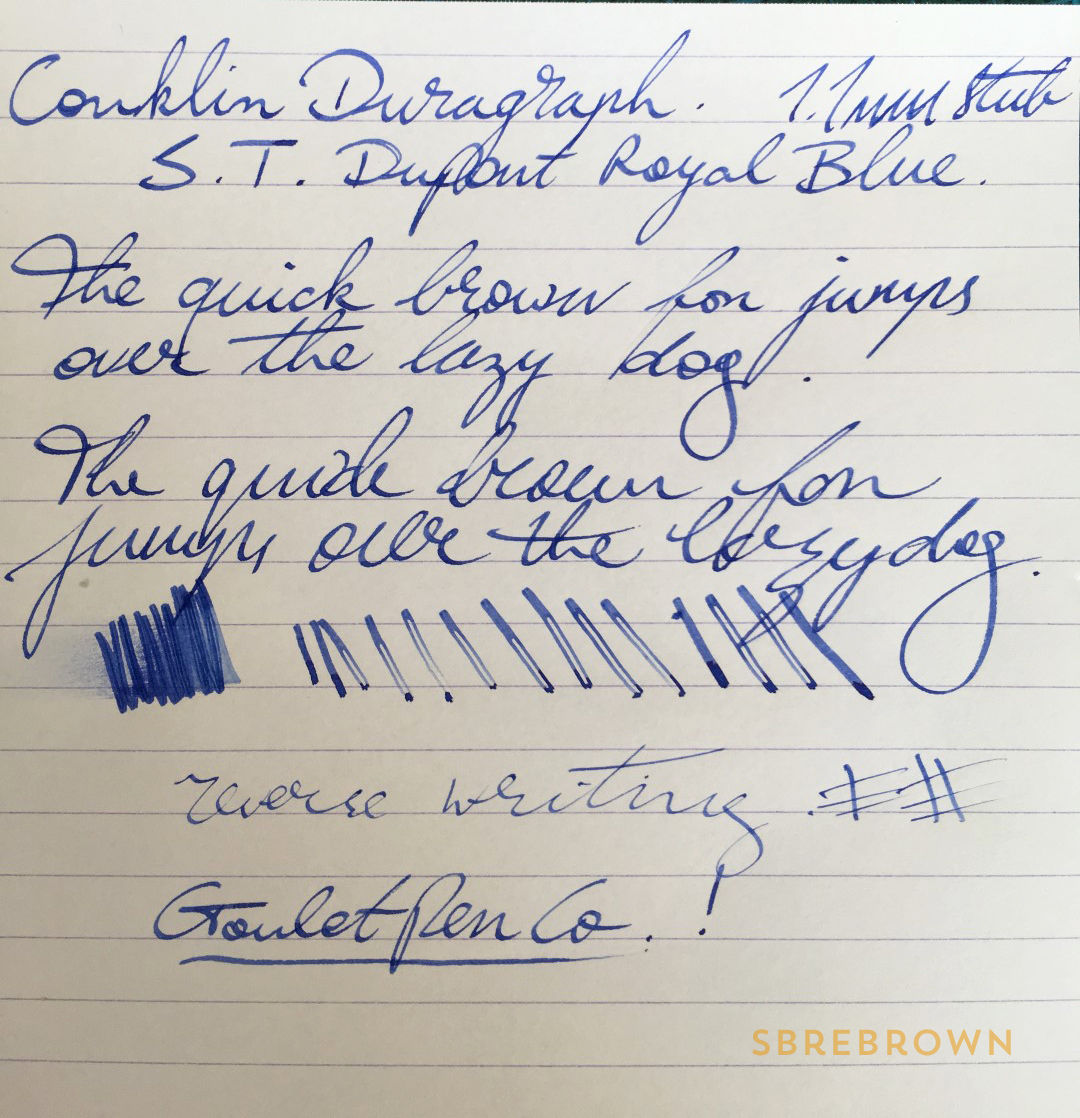 Conklin Duragraph. 1.1mm Stub
S.T. Dupont Royal Blue.
The quick brown fox jumps
over the lazy dog.
The quick brown fox
jumps over the lazy dog.
reverse writing. ##
Goulet Pen Co. !
SBREBROWN